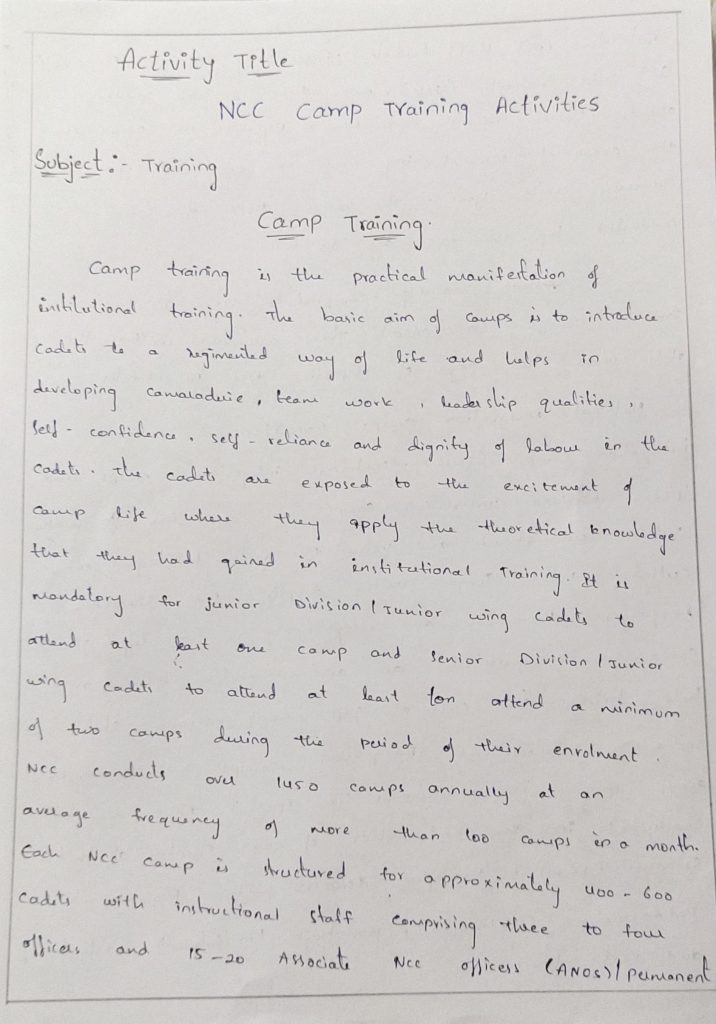 Activity Title
NCC Camp Training Activities
Subject :- Training
Camp Training.
Camp training is the practical manifestation of
institutional training. The basic aim of camps is to introduce
cadets to a regimented way of life and helps in
developing camaraderie, team work, leadership qualities,
self-confidence, self-reliance and dignity of labour in the
cadets. The cadets are exposed to the excitement of
camp life where they apply the theoretical knowledge
that they had gained in institutional Training. It is
mandatory for junior Division / Junior wing cadets to
attend at least one camp and senior Division / Junior
wing cadets to attend at least attend a minimum
of two camps during the period of their enrolment.
NCC conducts over 1450 camps annually at an
average frequency of more than 100 camps in a month.
Each NCC camp is structured for approximately 400-600
cadets with instructional staff comprising three to four
officers and 15-20 Associate NCC officers (ANOs) / permanent